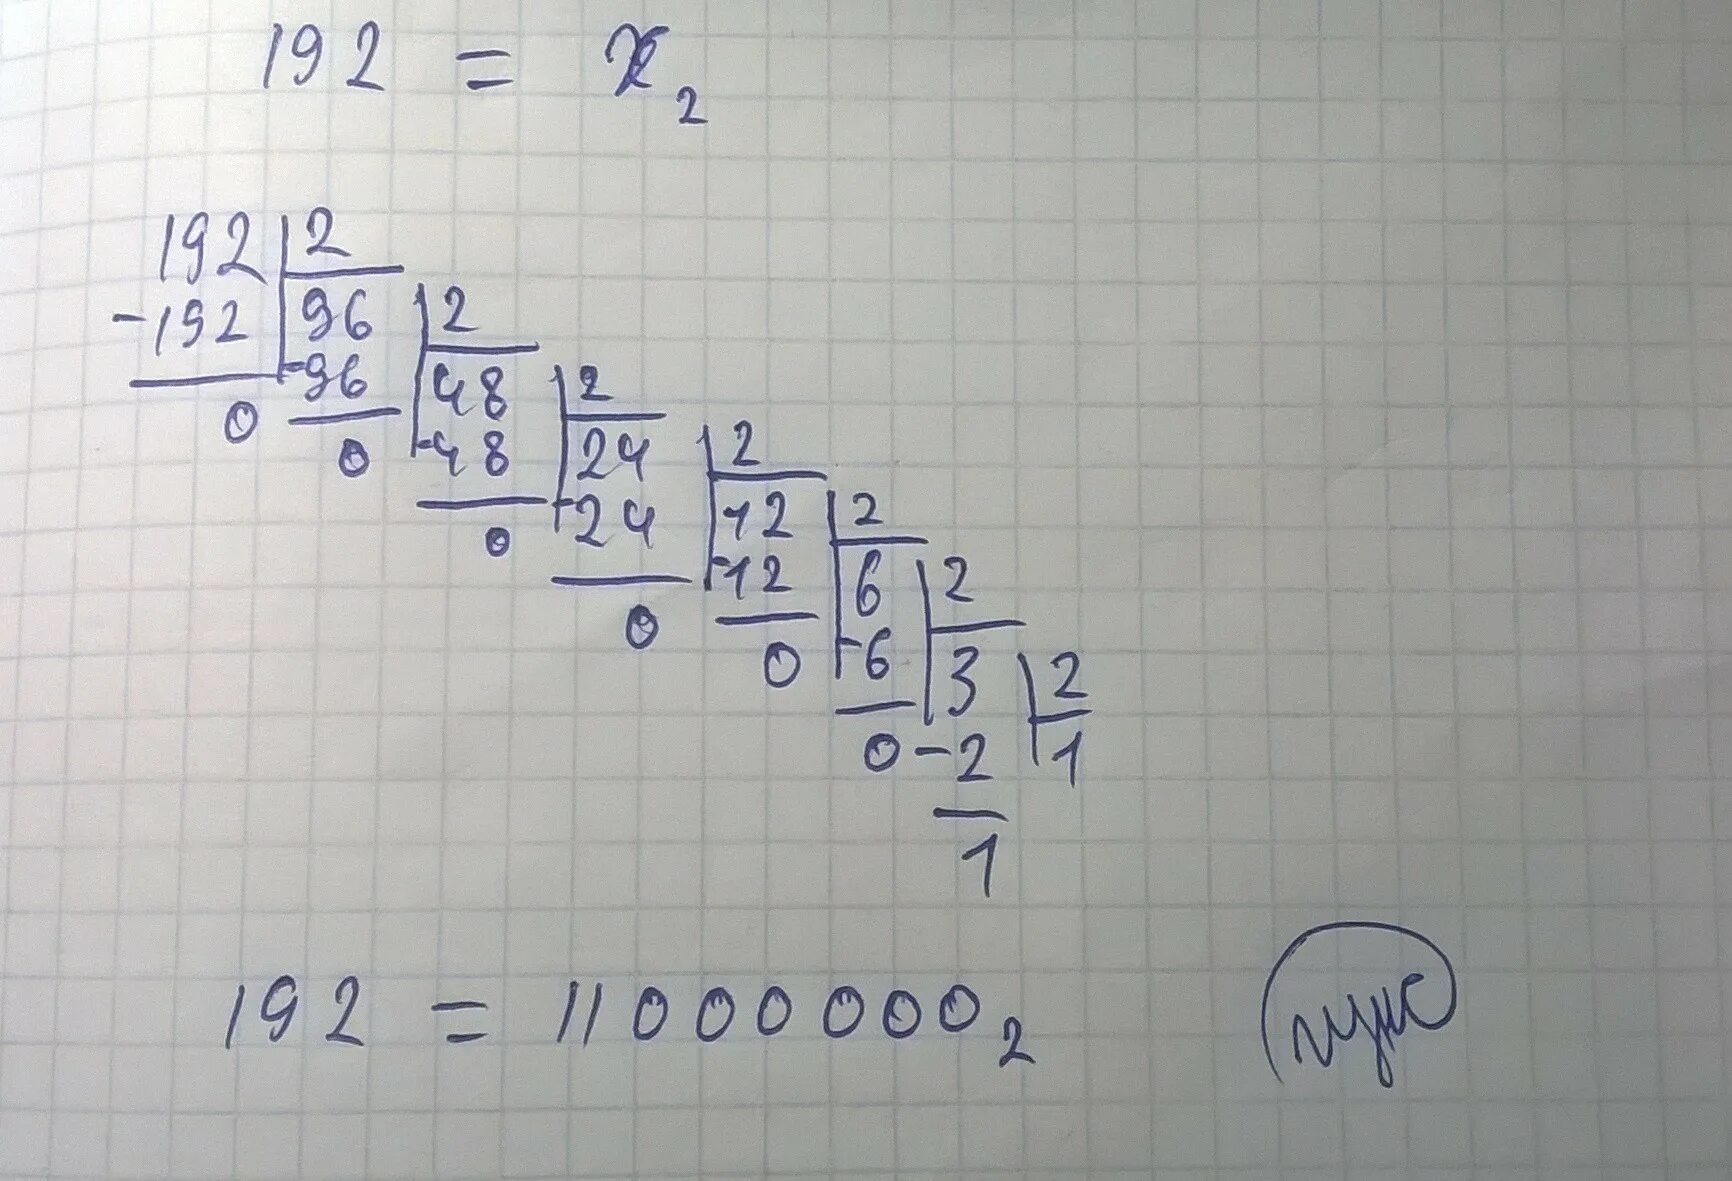 192 = x₂
192 2
-192 96 2
-96 48 2
0 0 -48 24 2
0 -24 12 2
0 -12 6 2
0 -6 3 2
0 -2 1
1
192 = 11000000₂